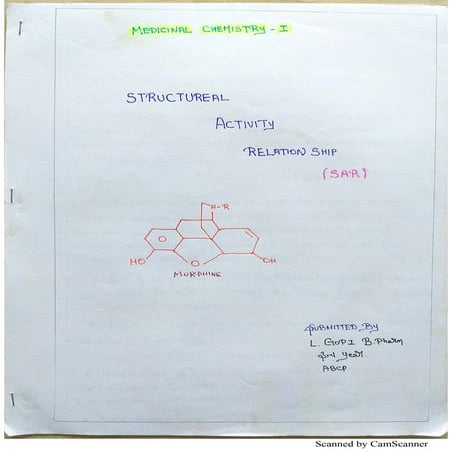 MEDICINAL CHEMISTRY - I
STRUCTUREAL
ACTIVITY
RELATION SHIP
(SAR)
N-R
O
HO
O
OH
MORPHINE
SUBMITTED By
L. GOPI B.Pharm
Year.
ABCP
Scanned by CamScanner